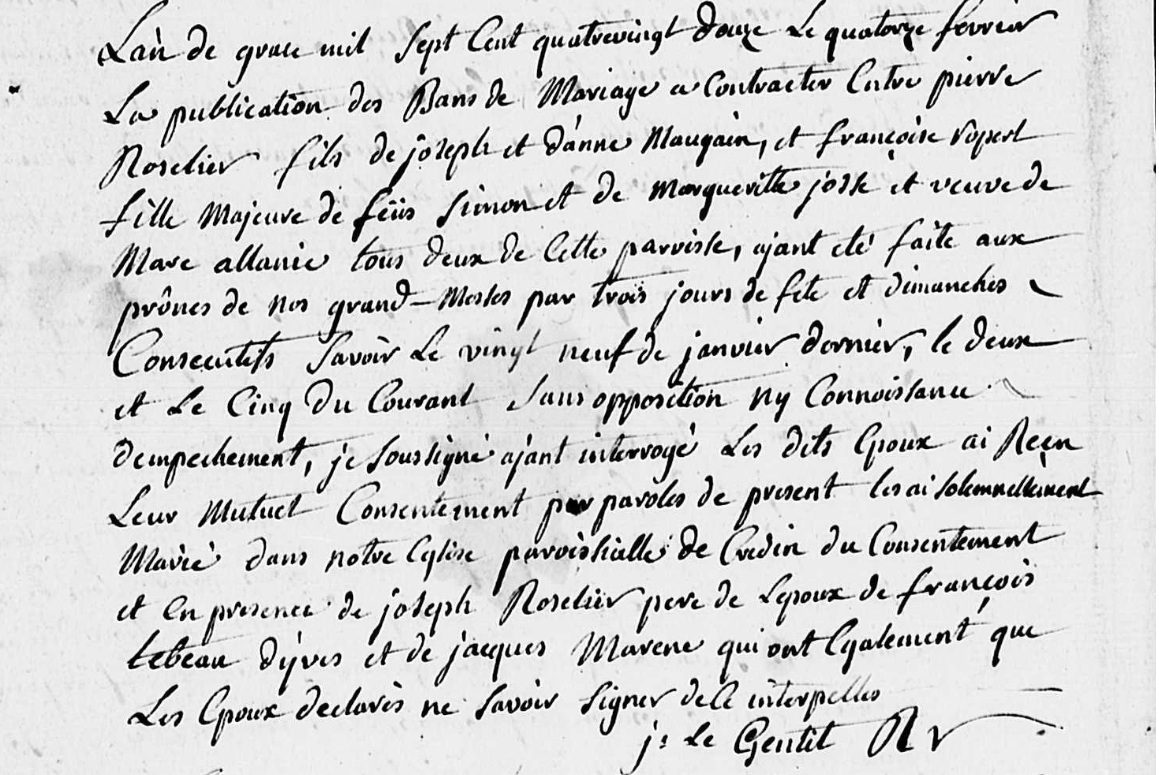 L'an de grace mil sept Cent quatrevingt douze Le quatorze fevrier
La publication des Bans de Mariage a Contracter Entre pierre
Roselier fils de joseph et d'anne Maugain, et françoise ropert
fille Majeure de feüs Simon et de Margueritte josse et veuve de
Marc allanic tous deux de Cette paroisse, ajant eté faite aux
prônes de nos grand-Messes par trois jours de fete et dimanches
Consecutifs Savoir Le vingt neuf de janvier dernier, le deux
et Le Cinq du Courant sans opposition ny Connoissance
dempechement, je soussigné ajant interrogé Les dits Epoux ai Reçu
Leur Mutuel Consentement par paroles de present les ai solemnellement
Marié dans notre Eglise paroissialle de Credin du Consentement
et En presence de joseph Roselier pere de Lepoux de françois
Lebeau d'yves et de jacques Marene qui ont Egalement que
Les Epoux declarés ne Savoir Signer de Ce interpellés
j: Le Gentil Rr